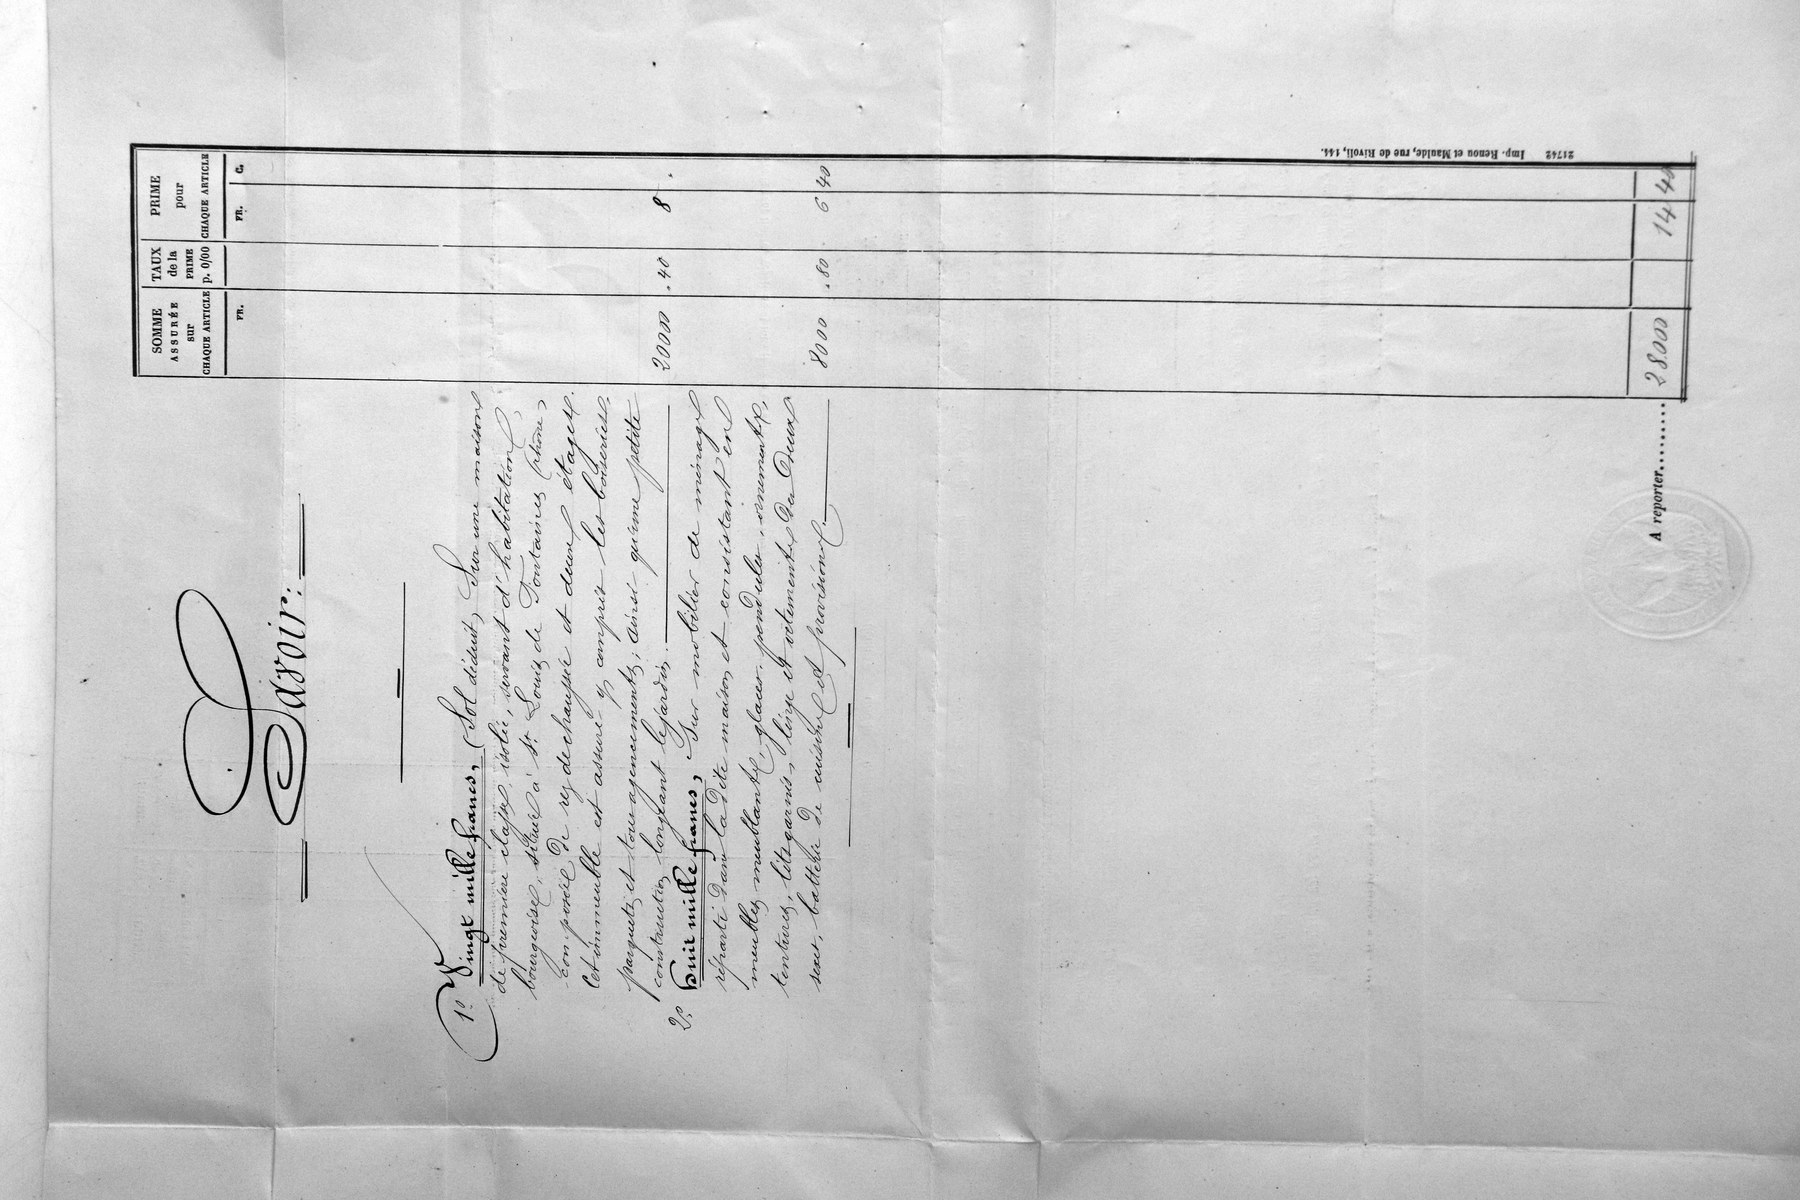 SOMME ASSURÉE sur CHAQUE ARTICLE
TAUX de la PRIME p. 0/00
PRIME pour CHAQUE ARTICLE
FR.
FR. C.
Savoir:
1º Vingt mille francs, (Sol déduit), Sur une maison
de première classe, isolée, servant d'habitation
bourgeoise, située à St Louis de Fontaines (Rhône)
composée de rez de chaussée et deux étages.
Cet immeuble est assuré y compris les boiseries,
parquets et tous agencements; ainsi qu'une petite
construction longeant le jardin. 20000 .40 8 .
2º Huit mille francs, Sur mobilier de ménage
réparti dans la dite maison et consistant en
meubles meublants, glaces, pendules, ornements,
tentures, lits garnis, linge et vêtements des deux
sexes, batterie de cuisine et provisions. 8000 .80 6 40
A reporter........ 28000 14 40
21742 Imp. Renou et Maulde, rue de Rivoli, 144.